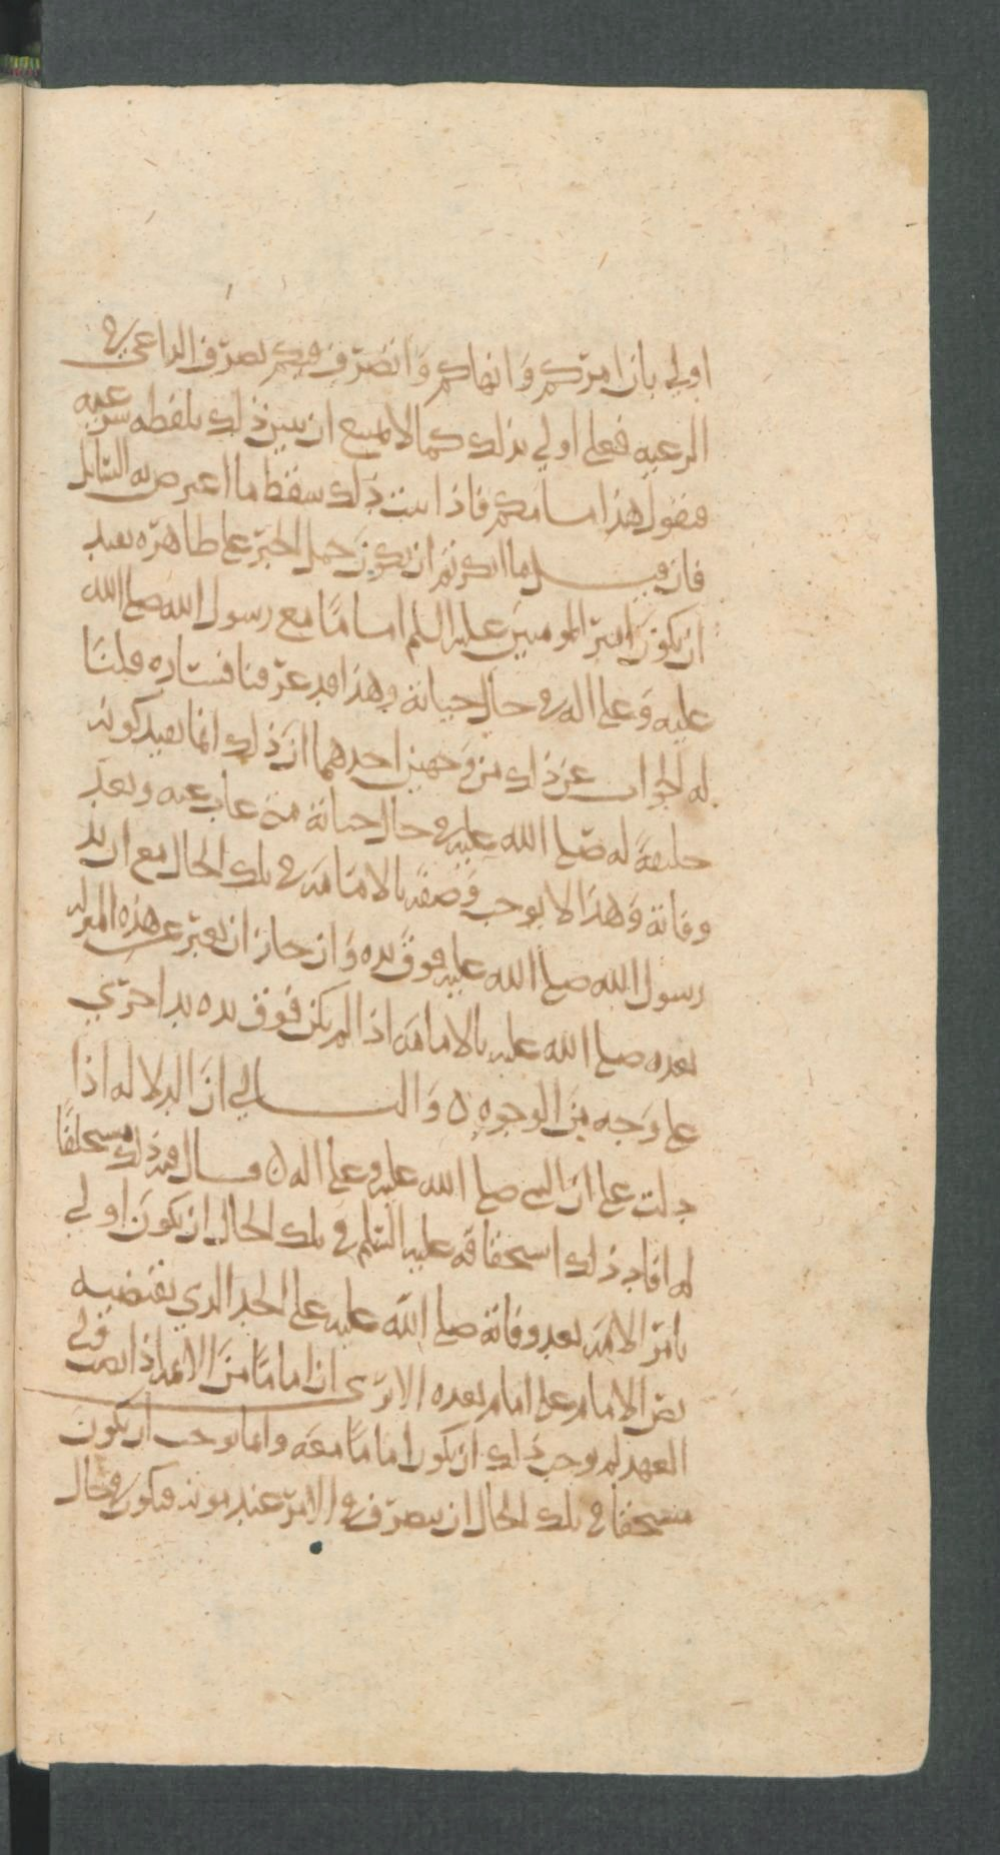 اولي بان امركم وانهاكم واتصرف فيكم تصرف الراعي في
الرعيه فعلي اولي بذلك كما لا يمتنع ان يبين ذلك بلفظه شرعيه
فيقول هذا امامكم فاذا ثبت ذلك سقط ما اعترض به السائل
فان قيل ما انكرتم ان يكون حمل الخبر على ظاهره يفيد
ان يكون امير المومنين عليه السلم اماما مع رسول الله صلى الله
عليه وعلى اله في حال حياته وهذا قد عرفنا فساده قلنا
له الجواب عن ذلك من وجهين احدهما ان ذلك انما يفيد كونه
خليفة له صلى الله عليه في حال حياته متى غاب عنه وبعد
وفاته وهذا لا يوجب وصفه بالامامه في تلك الحال مع ان يد
رسول الله صلى الله عليه فوق يده وان جاز ان يعبر عن هذه المنزله
بعده صلى الله عليه بالامامه اذا لم يكن فوق يده يد اخرى
على وجه من الوجوه ٥ والثاني ان الدلاله اذا
دلت على ان النبي صلى الله عليه وعلى اله ٥ قال قد ذلك مستحلفا
له افاد ذلك استحقاقه عليه السلم في تلك الحال ان يكون اولي
بامر الامه بعد وفاته صلى الله عليه على الحد الذي يقتضيه
نص الامام على امام بعده الا ترى ان اماما من الائمه اذا نصب ولي
العهد لم يوجب ذلك ان يكون اماما معه وانما يوجب ان يكون
مستحقا في تلك الحال ان يتصرف في الامر عند موته فيكون في حال